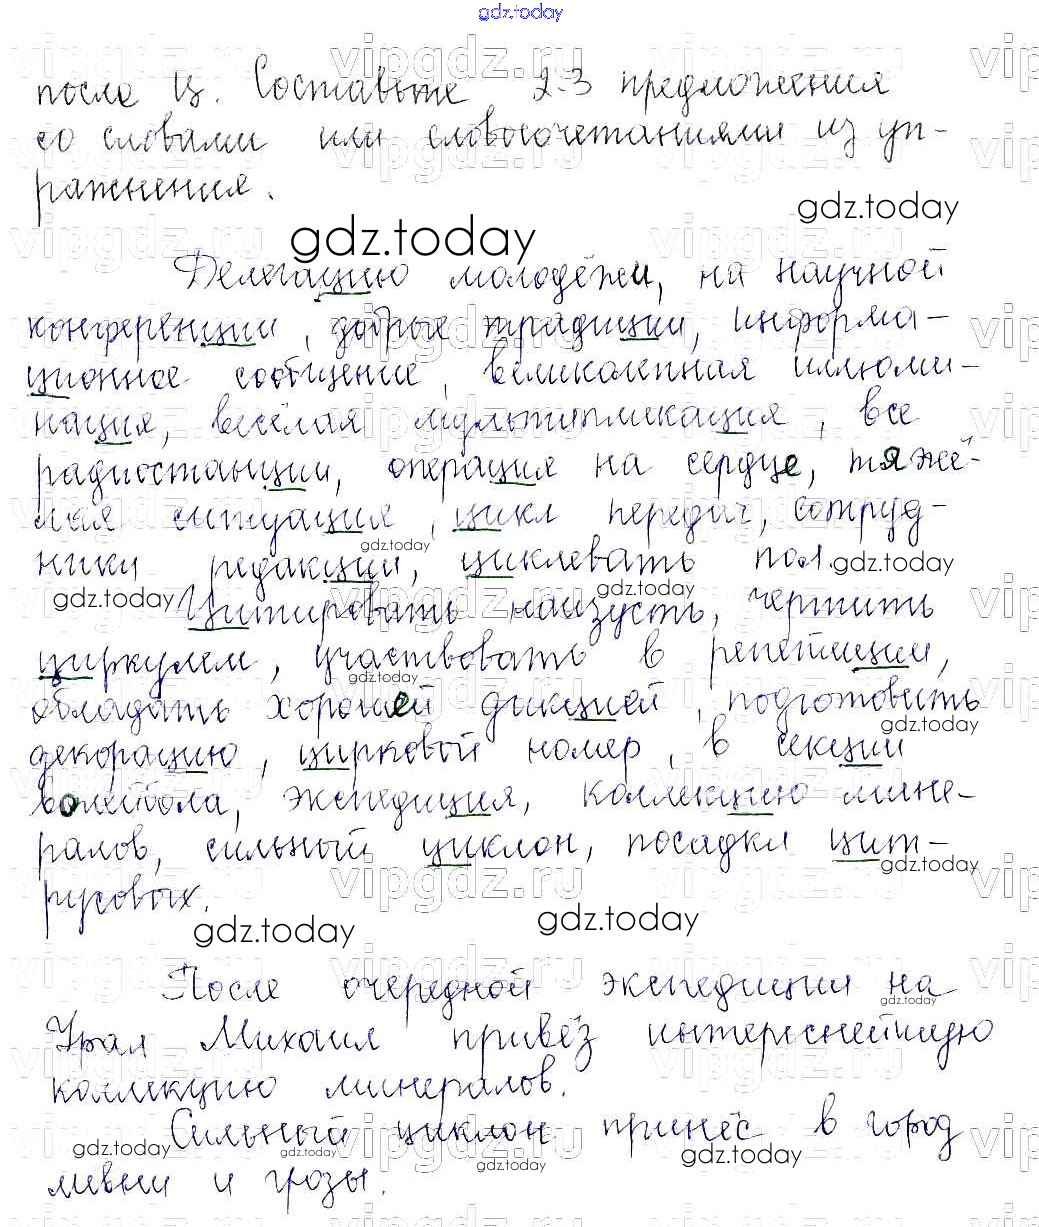 gdz.today
после ц. Составьте 2-3 предложения
со словами или словосочетаниями из уп-
ражнения.
gdz.today
gdz.today
Делегацию молодёжи, на научной
конференции, добрые традиции, информа-
ционное сообщение, великолепная иллюми-
нация, весёлая мультипликация, все
радиостанции, операция на сердце, тяжё-
лая ситуация, цикл передач, сотруд-
gdz.today
ники редакции, циклевать пол.
gdz.today
gdz.today
gdz.today
Цитировать наизусть, чертить
циркулем, участвовать в репетиции,
gdz.today
обладать хорошей дикцией, подготовить
gdz.today
декорацию, цирковой номер, в секции
волейбола, экспедиция, коллекцию мине-
ралов, сильный циклон, посадки цит-
gdz.today
русовых.
gdz.today
gdz.today
После очередной экспедиции на
gdz.today
Урал Михаил привёз интереснейшую
коллекцию минералов.
Сильный циклон принёс в город
gdz.today
gdz.today
gdz.today
ливни и грозы.
vipgdz.ru